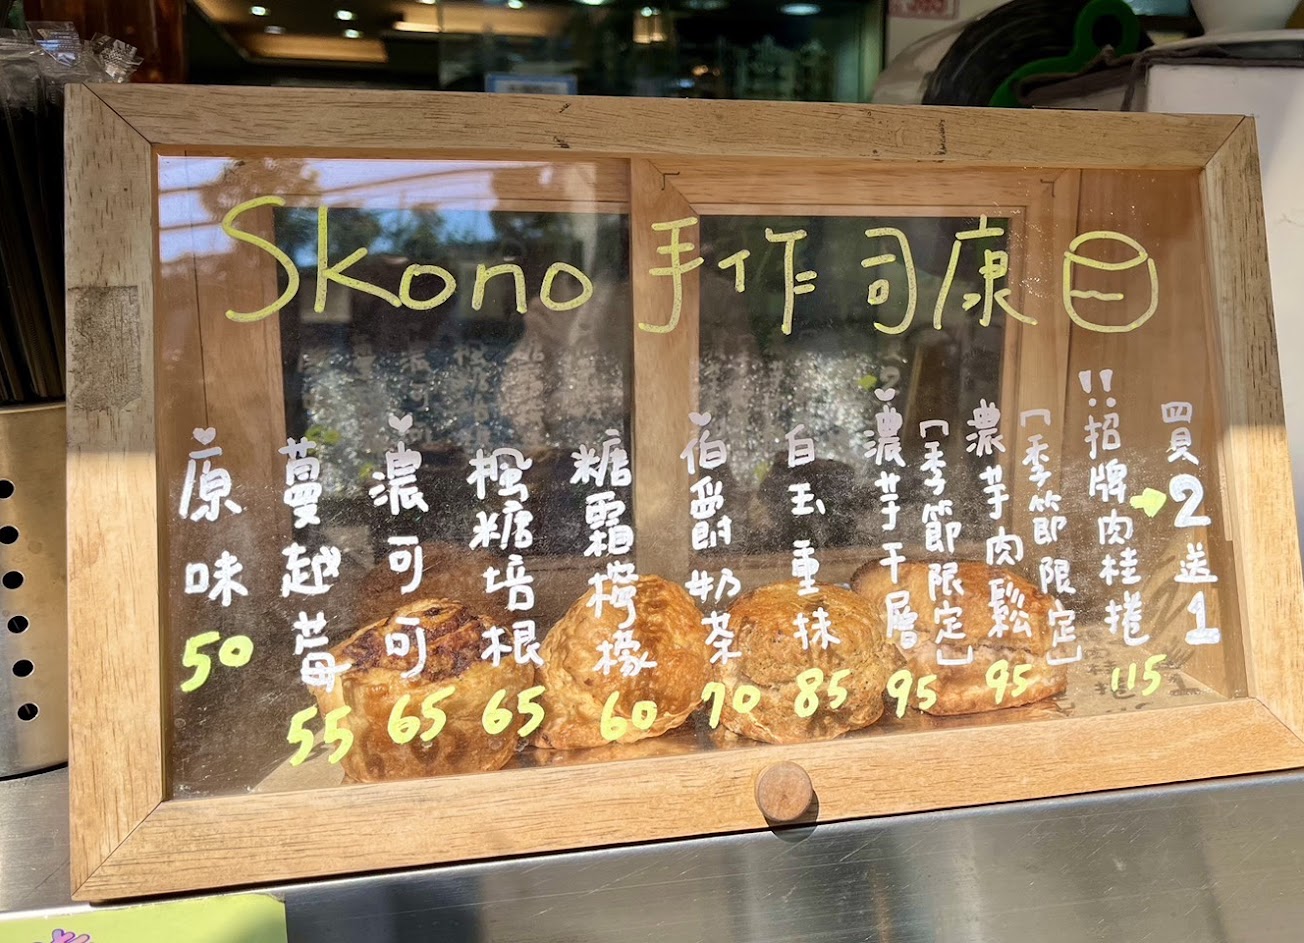 Skono 手作司康
原味 50
蔓越莓 55
濃可可 65
楓糖培根 65
糖霜檸檬 60
伯爵奶茶 70
白玉重抹 85
濃芋千層 95
[季節限定]
濃芋肉鬆 95
[季節限定]
!!招牌肉桂捲 115
買2送1